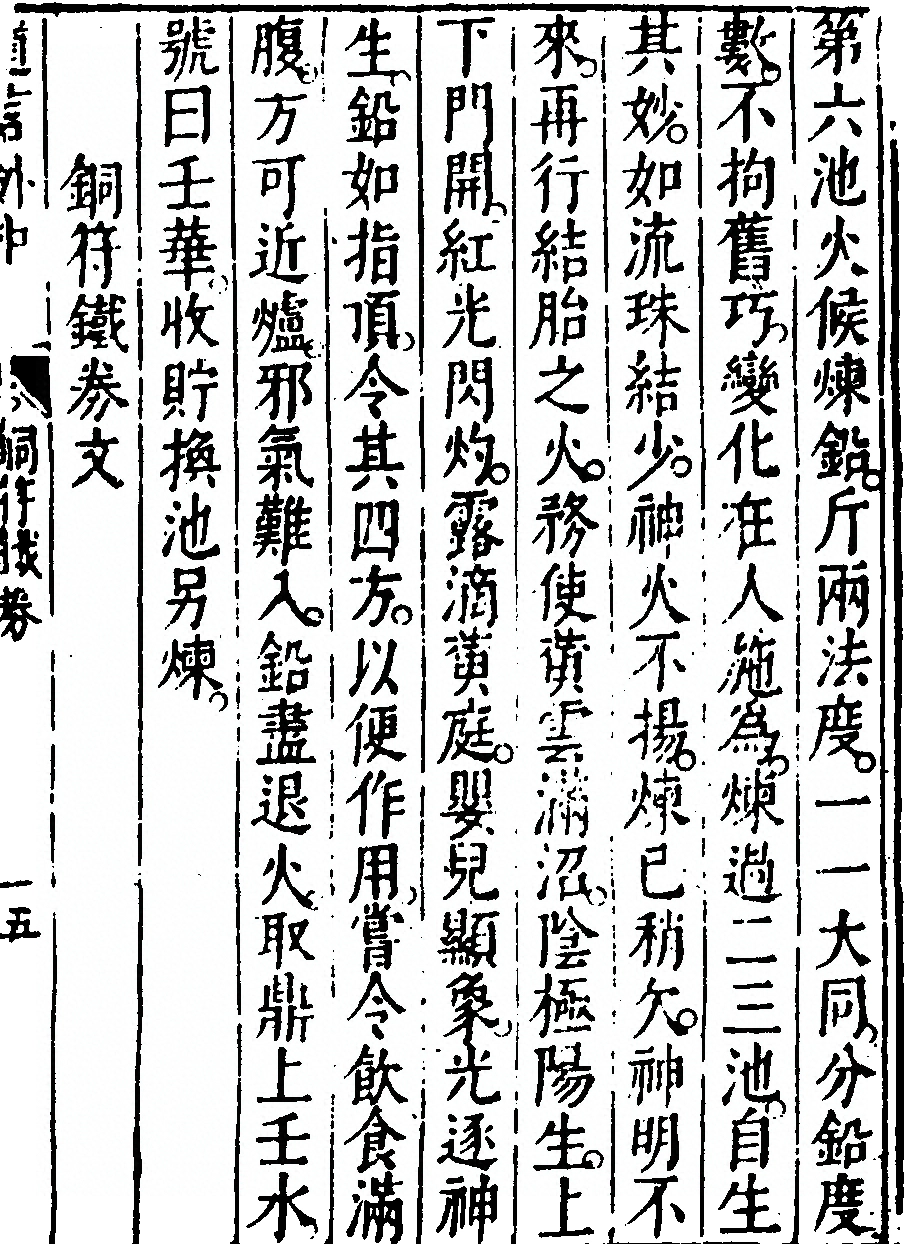 第六池火候煉鉛。斤兩法度。一一大同。分鉛度
數。不拘舊巧。變化在人施為。煉過二三池。自生
其妙。如流珠結少。神火不揚。煉已稍欠。神明不
來。再行結胎之火。務使黃雲滿沼。陰極陽生。上
下門開。紅光閃灼。露滴黃庭。嬰兒顯象。光逐神
生。鉛如指頂。令其四方。以便作用。嘗令飲食滿
腹。方可近爐。邪氣難入。鉛盡退火。取鼎上壬水。
號曰壬華。收貯換池另煉。
銅符鐵券文
一五